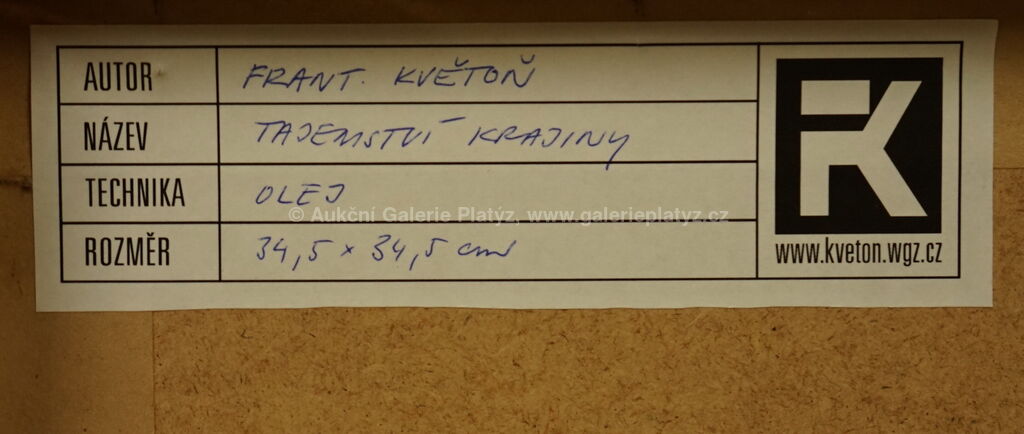 AUTOR FRANT. KVĚTOŇ
NÁZEV TAJEMSTVÍ KRAJINY
TECHNIKA OLEJ
© Aukční Galerie Platýz, www.galerieplatyz.cz
ROZMĚR 34,5 × 34,5 cm
FK
www.kveton.wgz.cz